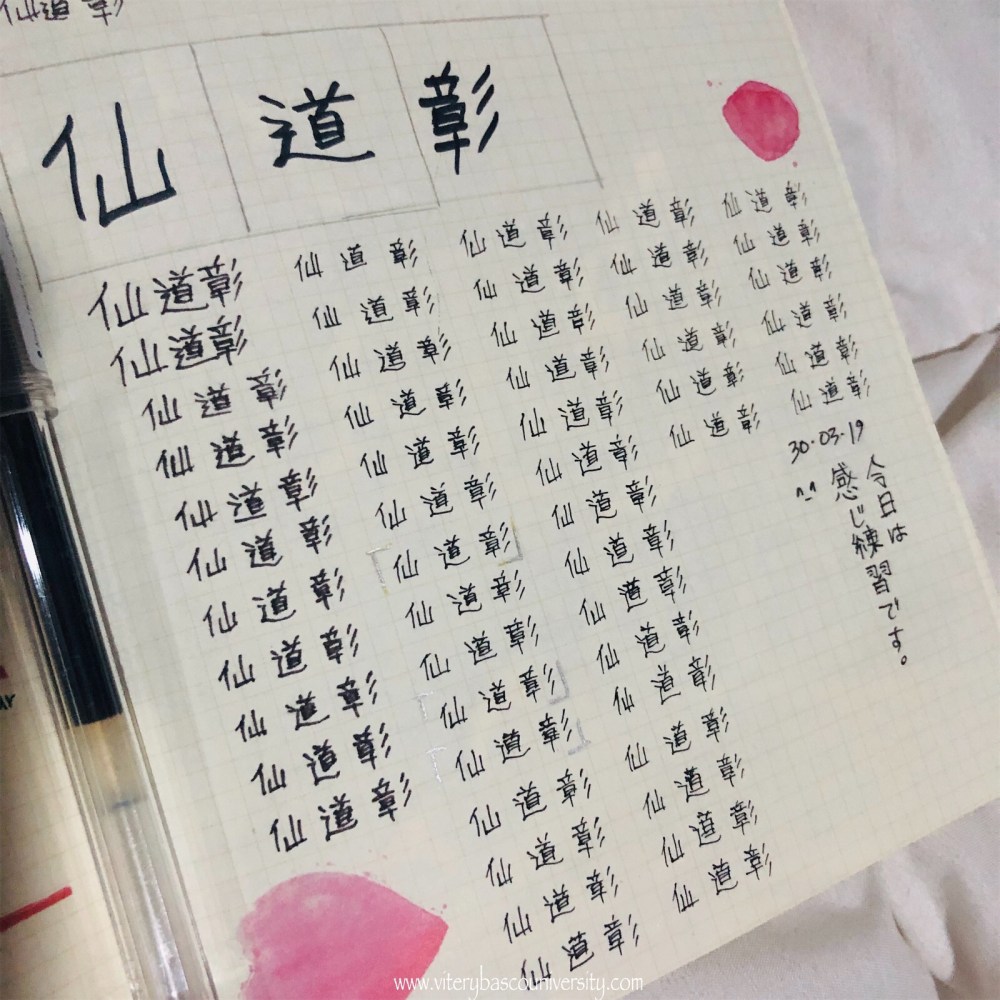 仙道彰
仙道彰
仙道彰
仙道彰
仙道彰
仙道彰
仙道彰
仙道彰
仙道彰
仙道彰
仙道彰
仙道彰
仙道彰
仙道彰
仙道彰
仙道彰
仙道彰
仙道彰
仙道彰
仙道彰
仙道彰
仙道彰
仙道彰
仙道彰
仙道彰
仙道彰
仙道彰
仙道彰
仙道彰
仙道彰
仙道彰
仙道彰
仙道彰
仙道彰
仙道彰
仙道彰
仙道彰
仙道彰
仙道彰
仙道彰
仙道彰
仙道彰
仙道彰
仙道彰
仙道彰
仙道彰
仙道彰
仙道彰
仙道彰
仙道彰
仙道彰
仙道彰
仙道彰
仙道彰
仙道彰
30.03.19
今日は
感じ練習です。
^-^
www.viterybascouniversity.com